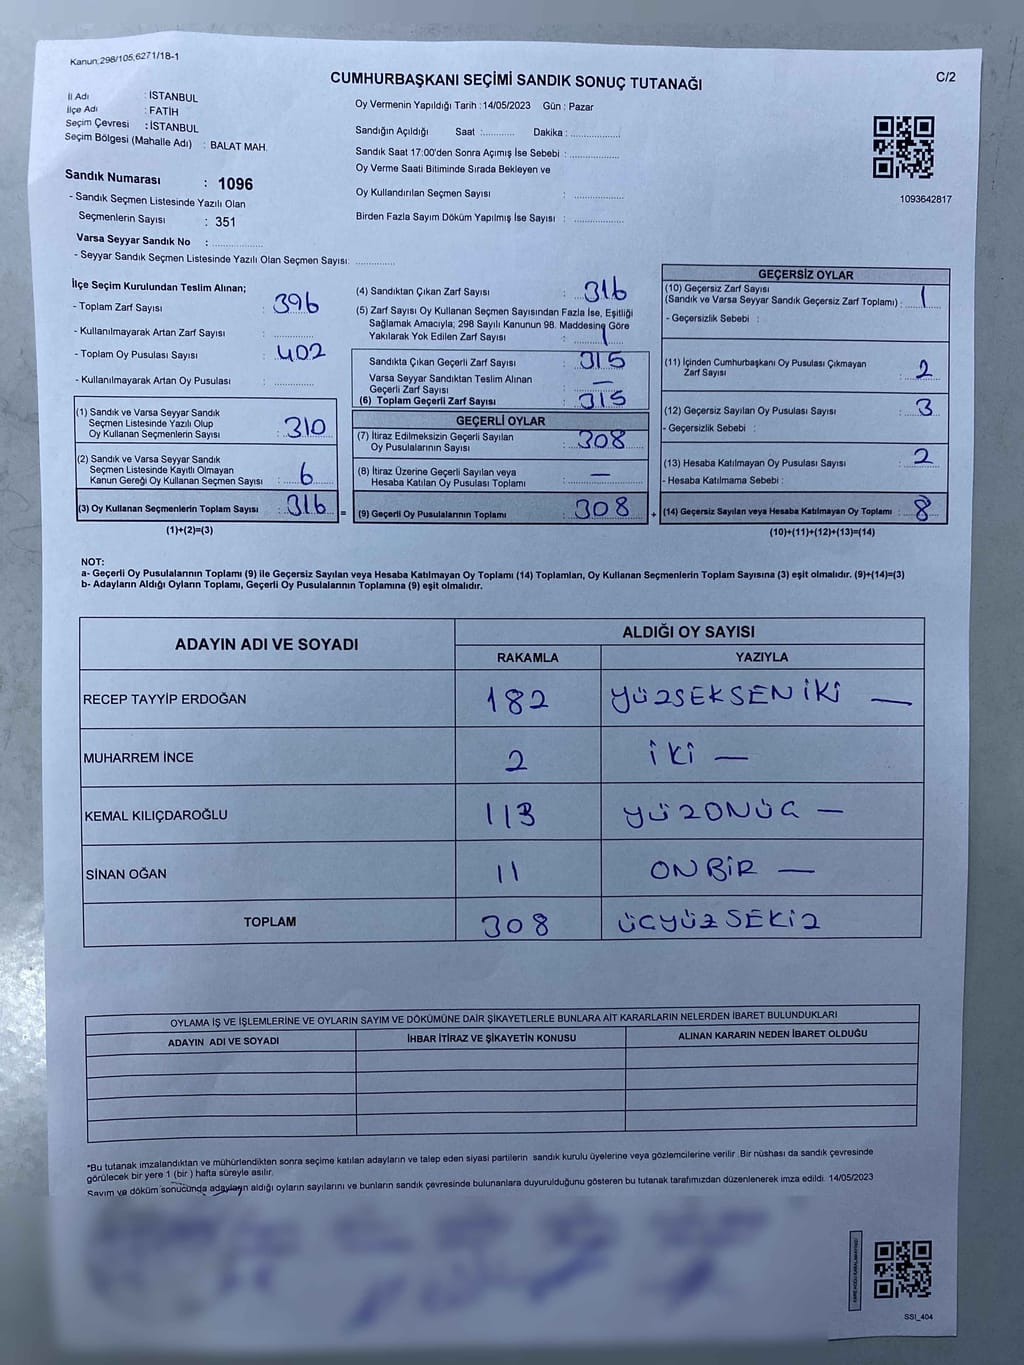 Kanun:298/105,6271/18-1
C/2
CUMHURBAŞKANI SEÇİMİ SANDIK SONUÇ TUTANAĞI
İl Adı : İSTANBUL
İlçe Adı : FATİH
Seçim Çevresi : İSTANBUL
Seçim Bölgesi (Mahalle Adı) : BALAT MAH.
Oy Vermenin Yapıldığı Tarih : 14/05/2023 Gün : Pazar
Sandığın Açıldığı Saat :............ Dakika :................
Sandık Saat 17:00'den Sonra Açımış İse Sebebi :................
Oy Verme Saati Bitiminde Sırada Bekleyen ve
Oy Kullandırılan Seçmen Sayısı :................
Birden Fazla Sayım Döküm Yapılmış İse Sayısı :................
1093642817
Sandık Numarası : 1096
- Sandık Seçmen Listesinde Yazılı Olan
Seçmenlerin Sayısı : 351
Varsa Seyyar Sandık No :................
- Seyyar Sandık Seçmen Listesinde Yazılı Olan Seçmen Sayısı: ............
İlçe Seçim Kurulundan Teslim Alınan;
- Toplam Zarf Sayısı : 396
- Kullanılmayarak Artan Zarf Sayısı : ............
- Toplam Oy Pusulası Sayısı : 402
- Kullanılmayarak Artan Oy Pusulası : ............
(1) Sandık ve Varsa Seyyar Sandık
Seçmen Listesinde Yazılı Olup
Oy Kullanan Seçmenlerin Sayısı : 310
(2) Sandık ve Varsa Seyyar Sandık
Seçmen Listesinde Kayıtlı Olmayan
Kanun Gereği Oy Kullanan Seçmen Sayısı : 6
(3) Oy Kullanan Seçmenlerin Toplam Sayısı : 316
(1)+(2)=(3)
=
(4) Sandıktan Çıkan Zarf Sayısı : 316
(5) Zarf Sayısı Oy Kullanan Seçmen Sayısından Fazla İse, Eşitliği
Sağlamak Amacıyla; 298 Sayılı Kanunun 98. Maddesine Göre
Yakılarak Yok Edilen Zarf Sayısı : 1
Sandıkta Çıkan Geçerli Zarf Sayısı : 315
Varsa Seyyar Sandıktan Teslim Alınan
Geçerli Zarf Sayısı : —
(6) Toplam Geçerli Zarf Sayısı : 315
GEÇERLİ OYLAR
(7) İtiraz Edilmeksizin Geçerli Sayılan
Oy Pusulalarının Sayısı : 308
(8) İtiraz Üzerine Geçerli Sayılan veya
Hesaba Katılan Oy Pusulası Toplamı : —
(9) Geçerli Oy Pusulalarının Toplamı : 308
+
GEÇERSİZ OYLAR
(10) Geçersiz Zarf Sayısı
(Sandık ve Varsa Seyyar Sandık Geçersiz Zarf Toplamı) : 1
- Geçersizlik Sebebi :
(11) İçinden Cumhurbaşkanı Oy Pusulası Çıkmayan
Zarf Sayısı : 2
(12) Geçersiz Sayılan Oy Pusulası Sayısı : 3
- Geçersizlik Sebebi :
(13) Hesaba Katılmayan Oy Pusulası Sayısı : 2
- Hesaba Katılmama Sebebi :
(14) Geçersiz Sayılan veya Hesaba Katılmayan Oy Toplamı : 8
(10)+(11)+(12)+(13)=(14)
NOT:
a- Geçerli Oy Pusulalarının Toplamı (9) ile Geçersiz Sayılan veya Hesaba Katılmayan Oy Toplamı (14) Toplamları, Oy Kullanan Seçmenlerin Toplam Sayısına (3) eşit olmalıdır. (9)+(14)=(3)
b- Adayların Aldığı Oyların Toplamı, Geçerli Oy Pusulalarının Toplamına (9) eşit olmalıdır.
ADAYIN ADI VE SOYADI ALDIĞI OY SAYISI
RAKAMLA YAZIYLA
RECEP TAYYİP ERDOĞAN 182 YÜZSEKSEN İKİ —
MUHARREM İNCE 2 İKİ —
KEMAL KILIÇDAROĞLU 113 YÜZONÜÇ —
SİNAN OĞAN 11 ONBİR —
TOPLAM 308 ÜÇYÜZ SEKİZ
OYLAMA İŞ VE İŞLEMLERİNE VE OYLARIN SAYIM VE DÖKÜMÜNE DAİR ŞİKAYETLERLE BUNLARA AİT KARARLARIN NELERDEN İBARET BULUNDUKLARI
ADAYIN ADI VE SOYADI İHBAR İTİRAZ VE ŞİKAYETİN KONUSU ALINAN KARARIN NEDEN İBARET OLDUĞU
*Bu tutanak imzalandıktan ve mühürlendikten sonra seçime katılan adayların ve talep eden siyasi partilerin sandık kurulu üyelerine veya gözlemcilerine verilir .Bir nüshası da sandık çevresinde
görülecek bir yere 1 (bir ) hafta süreyle asılır.
Sayım ve döküm sonucunda adayların aldığı oyların sayılarını ve bunların sandık çevresinde bulunanlara duyurulduğunu gösteren bu tutanak tarafımızdan düzenlenerek imza edildi. 14/05/2023
SSI_404